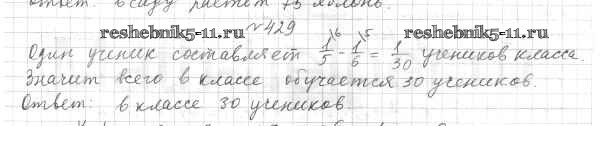 Ответ: в саду растет 75 яблонь.
reshebnik5-11.ru №429 reshebnik5-11.ru
Один ученик составляет 1/5 \6 - 1/6 \5 = 1/30 учеников класса.
Значит всего в классе обучается 30 учеников.
Ответ: в классе 30 учеников